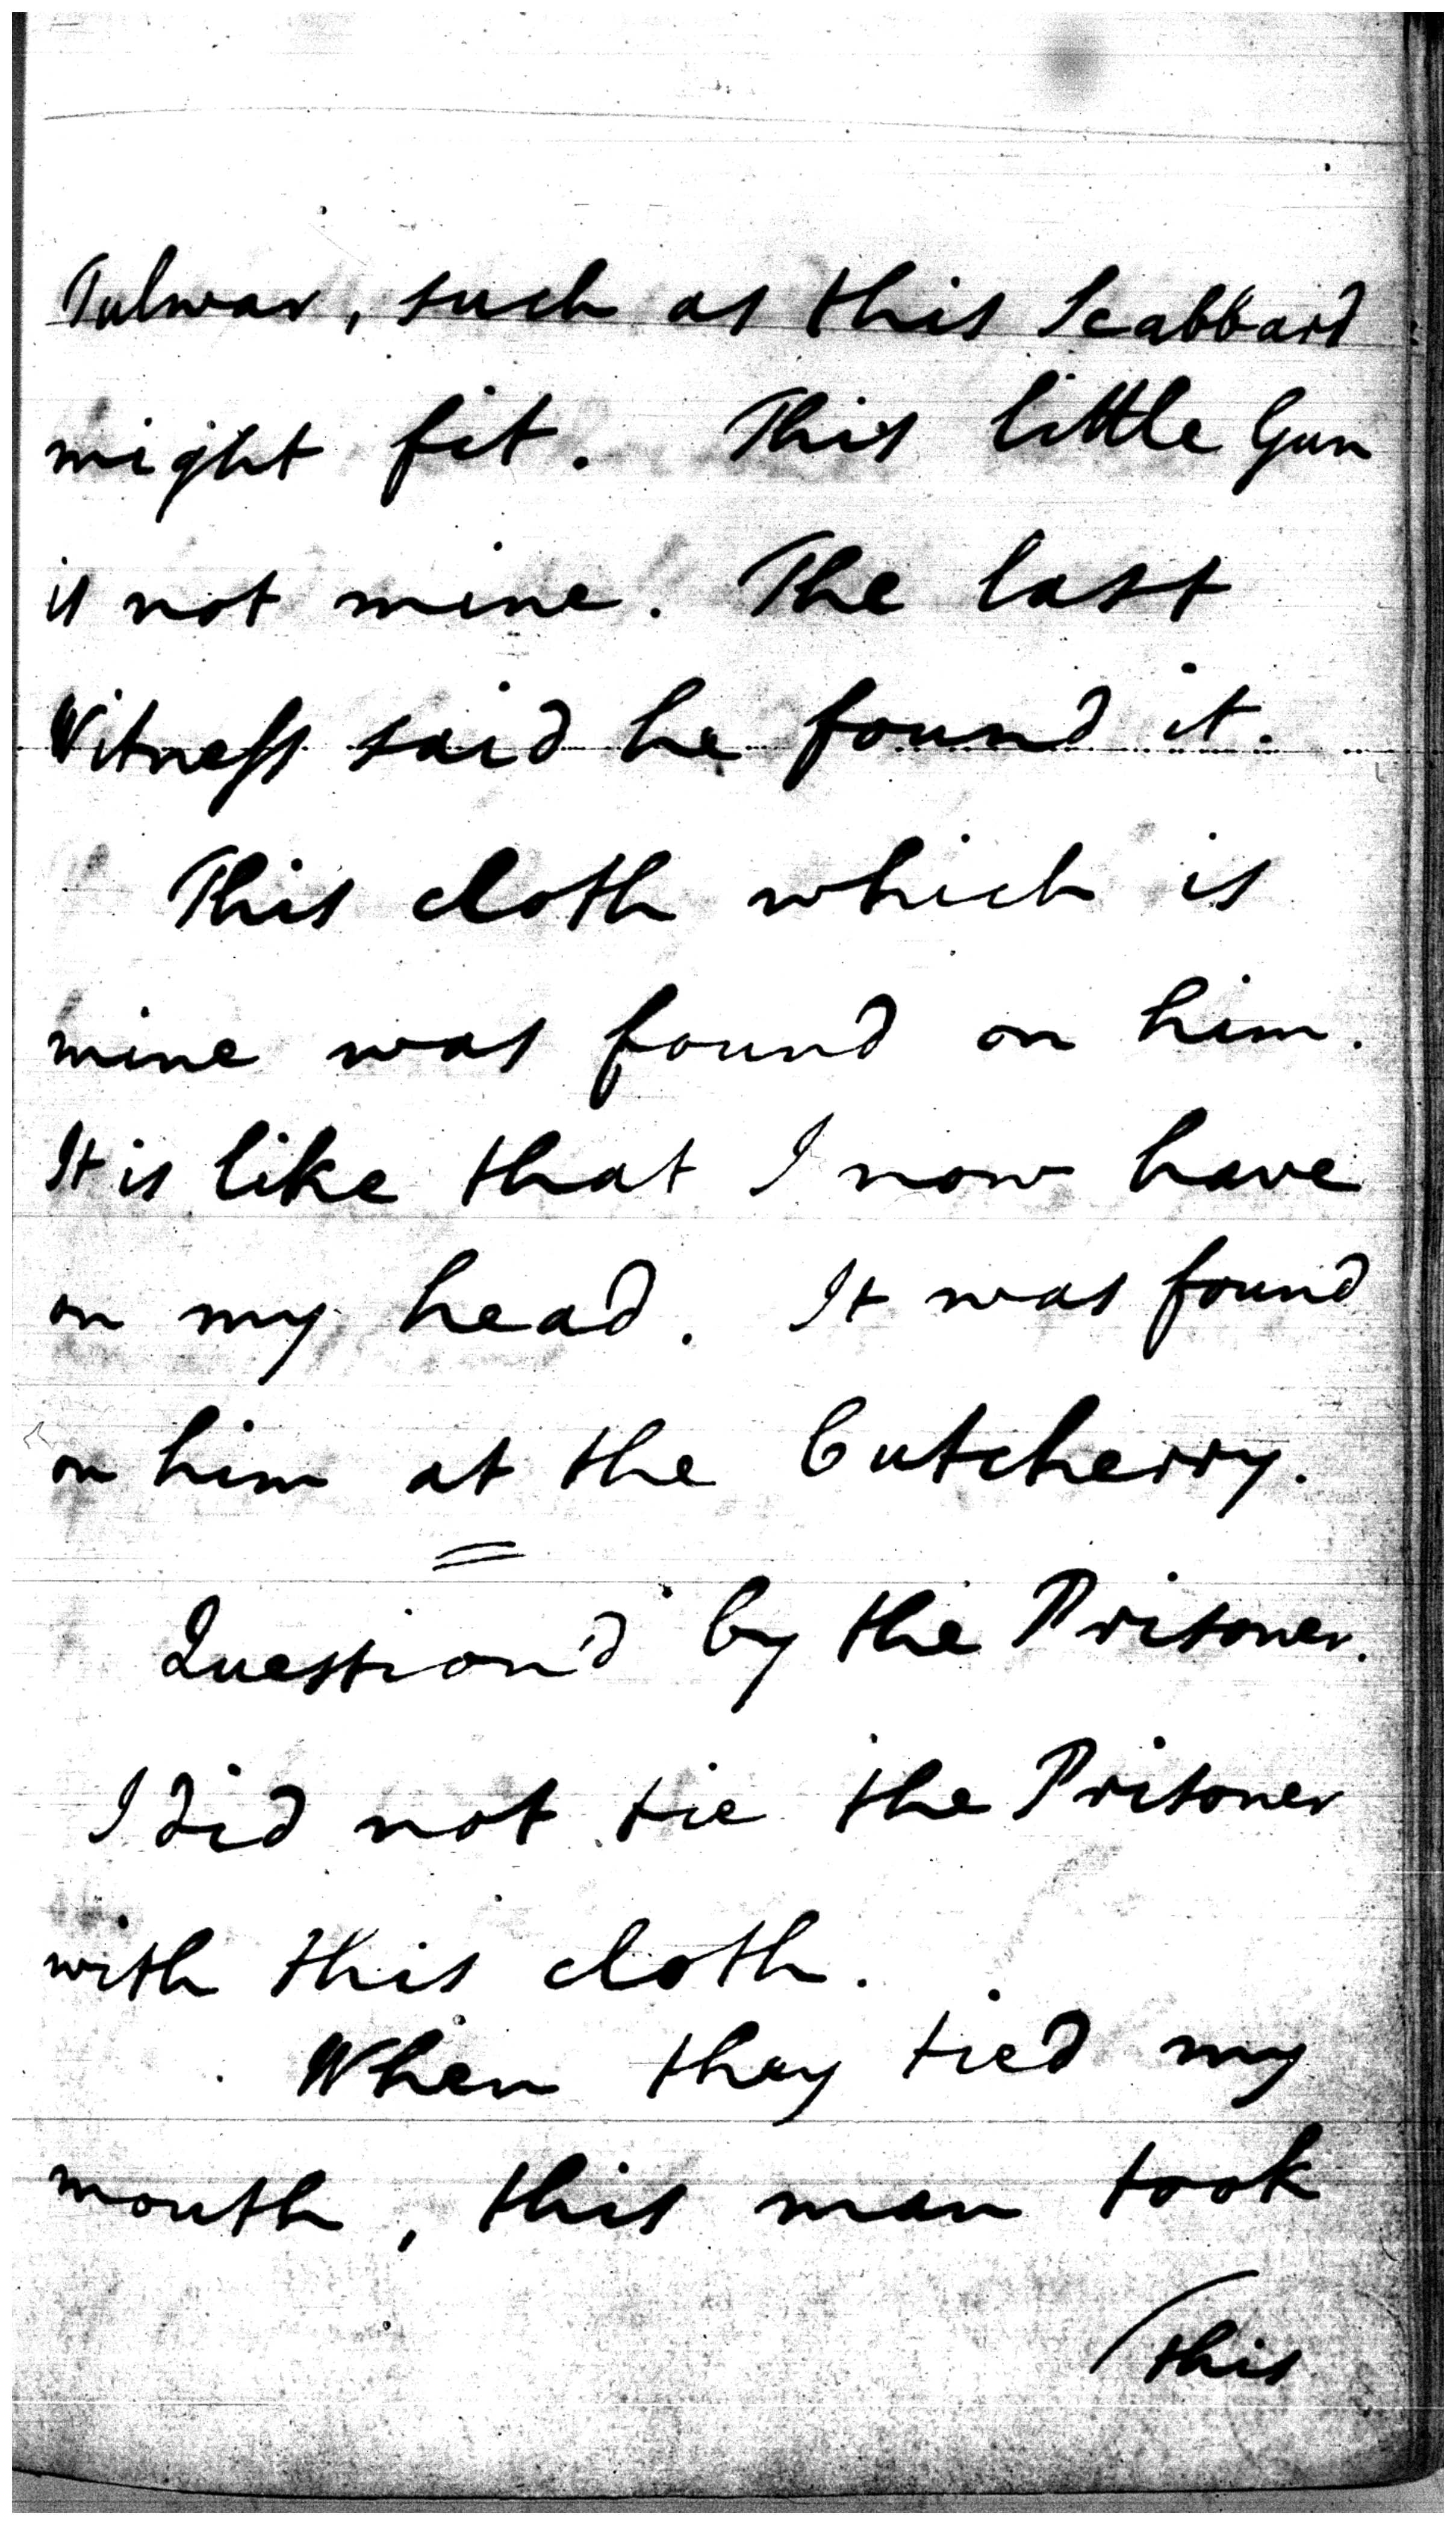 Tulwar, such as this Scabbard
might fit. This little Gun
is not mine. The last
Witness said he found it.
This cloth which is
mine was found on him.
It is like that I now have
on my head. It was found
on him at the Cutcherry.
Question'd by the Prisoner.
I did not tie the Prisoner
with this cloth.
When they tied my
mouth, this man took
this